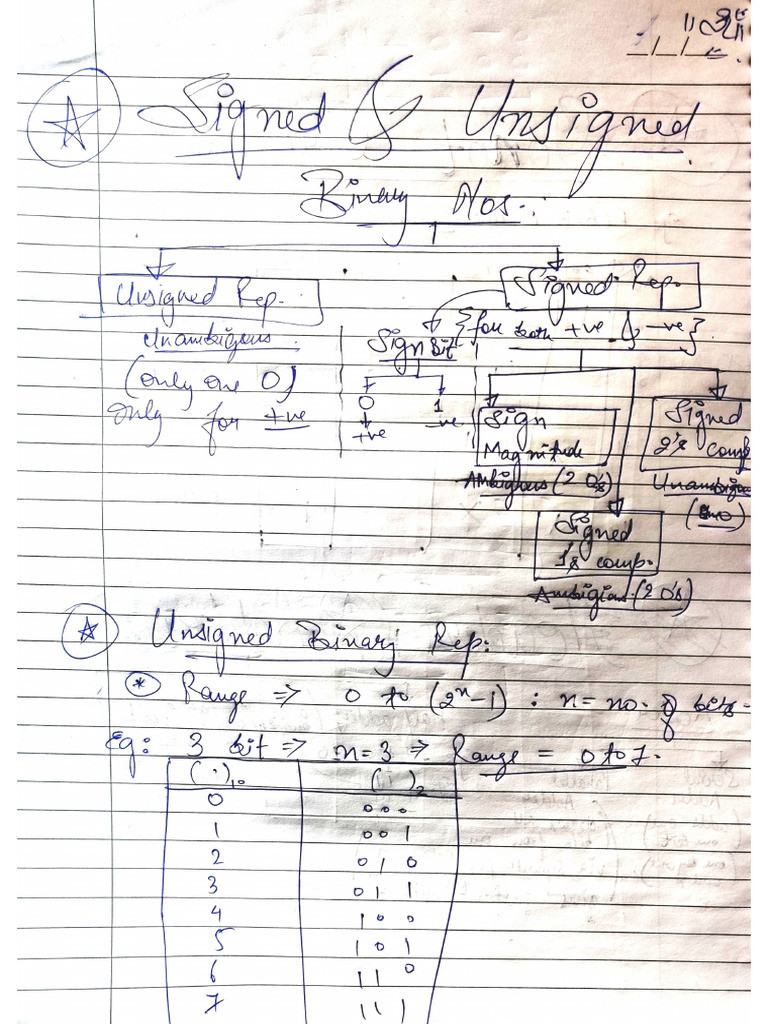 "ॐ"
Signed & Unsigned
Binary Nos.:
Unsigned Rep.
Unambigous
(only one 0)
only for +ve
Signed Rep.
{for both +ve & -ve}
Sign bit
0 1
+ve -ve
Sign
Magnitude
Ambigious (2 0's)
Signed
2's comp
Unambigo
Signed
1's comp.
Ambigious (2 0's)
Unsigned Binary Rep:
* Range => 0 to (2ⁿ-1) : n = no. of bits.
Eg: 3 bit => n=3 => Range = 0 to 7.
( )₁₀ ( )₂
0 000
1 001
2 010
3 011
4 100
5 101
6 110
7 111